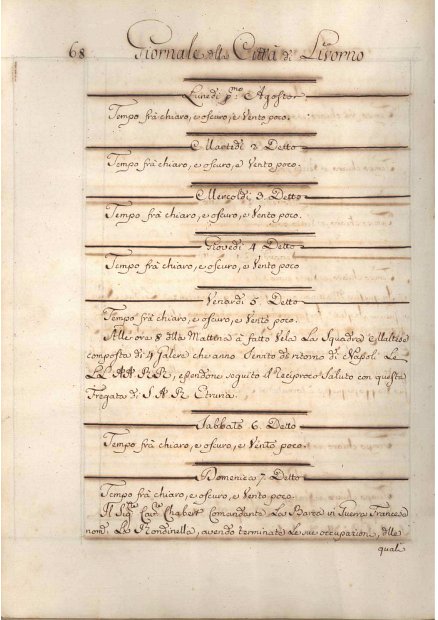 68 Giornale della Città di Livorno
Lunedi pmo: Agosto
Tempo frà chiaro, e oscuro, e Vento poco.
Martedi 2 Detto
Tempo frà chiaro, e oscuro, e Vento poco.
Mercoldi 3 Detto
Tempo frà chiaro, e oscuro, e Vento poco.
Giovedi 4 Detto
Tempo frà chiaro, e oscuro, e Vento poco
Venardi 5 Detto
Tempo frà chiaro, e oscuro, e Vento poco.
Alle ore 8 della Mattina à fatto Vela La Squadra Maltese
composta di 4 Galere che anno Servito di ritorno di Napoli Le
LL AA RR, essendone seguito il Reciproco Saluto con questa
Fregata di S A R Etruria.
Sabbato 6. Detto
Tempo frà chiaro, e oscuro, e Vento poco.
Domenica 7. Detto
Tempo frà chiaro, e oscuro, e Vento poco.
Il Sigre Cavre Chabert Comandante La Barca di Guerra Francese
nomta La Rondinella, avendo terminate le sue occupazioni, dlle
quali